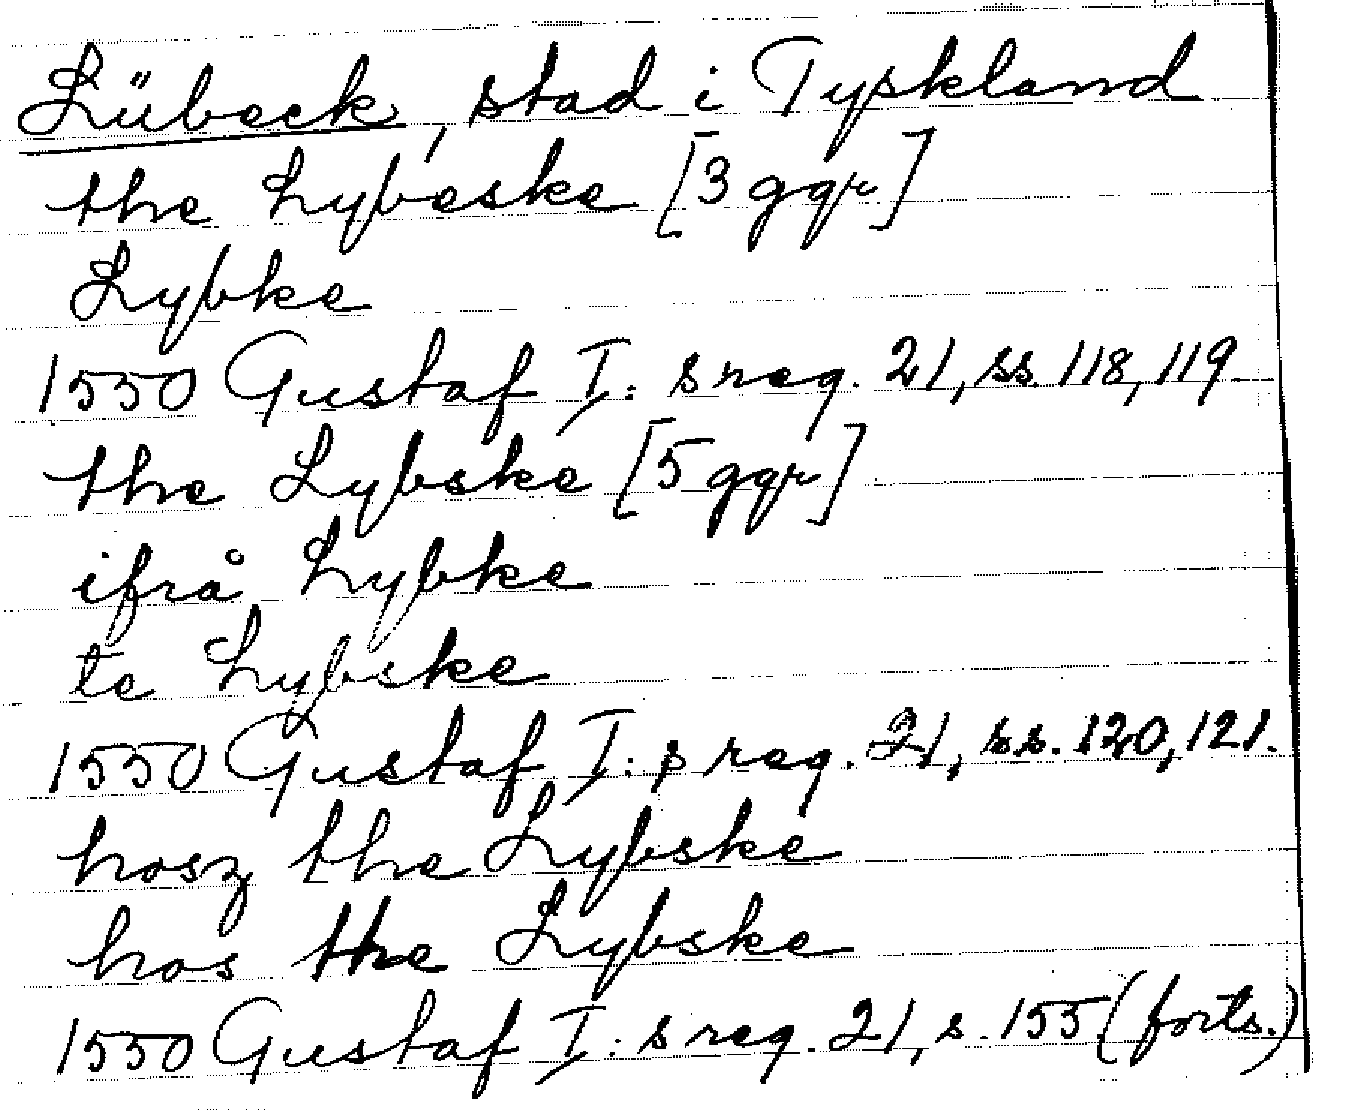 Lübeck, stad i Tyskland
the Lybeske [3 ggr]
Lybke
1550 Gustaf I:s reg. 21, ss 118, 119
the Lybske [5 ggr]
ifrå Lybke
te Lybske
1550 Gustaf I:s reg. 21, s.s. 120, 121.
hosz the Lybske
hos the Lybske
1550 Gustaf I:s reg. 21, s. 155 (forts.)